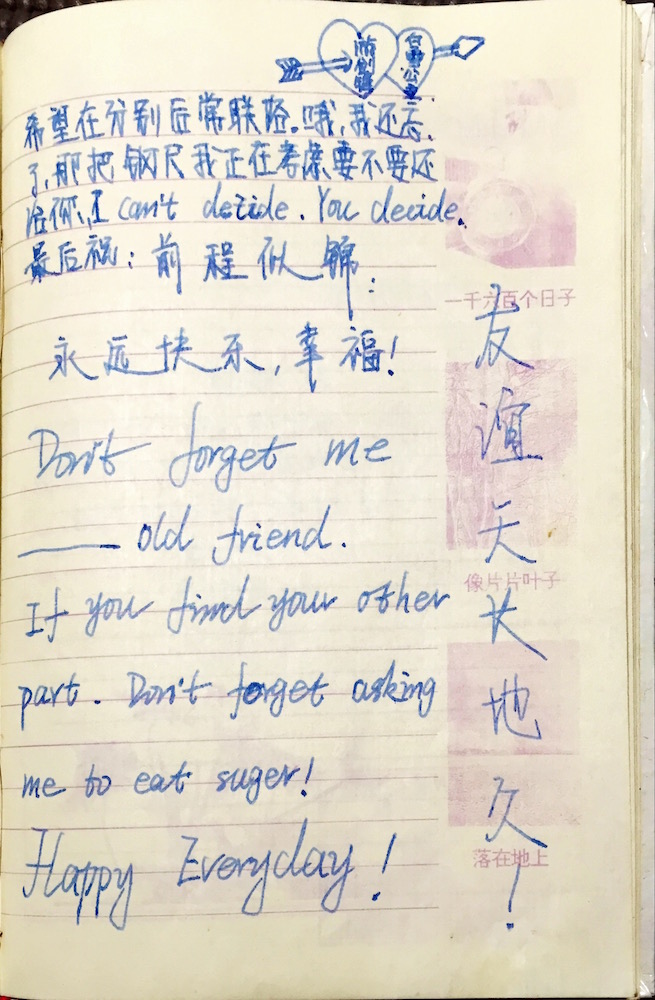 白雪公主
希望在分别后常联络。哦,我还忘
了,那把钢尺我正在考虑要不要还
给你,I can't decide. You decide.
最后祝:前程似锦:
永远快乐,幸福!
Don't forget me
—— old friend.
If you find your other
part. Don't forget asking
me to eat suger!
Happy Everyday!
一千六百个日子
像片片叶子
落在地上
友谊天长地久!